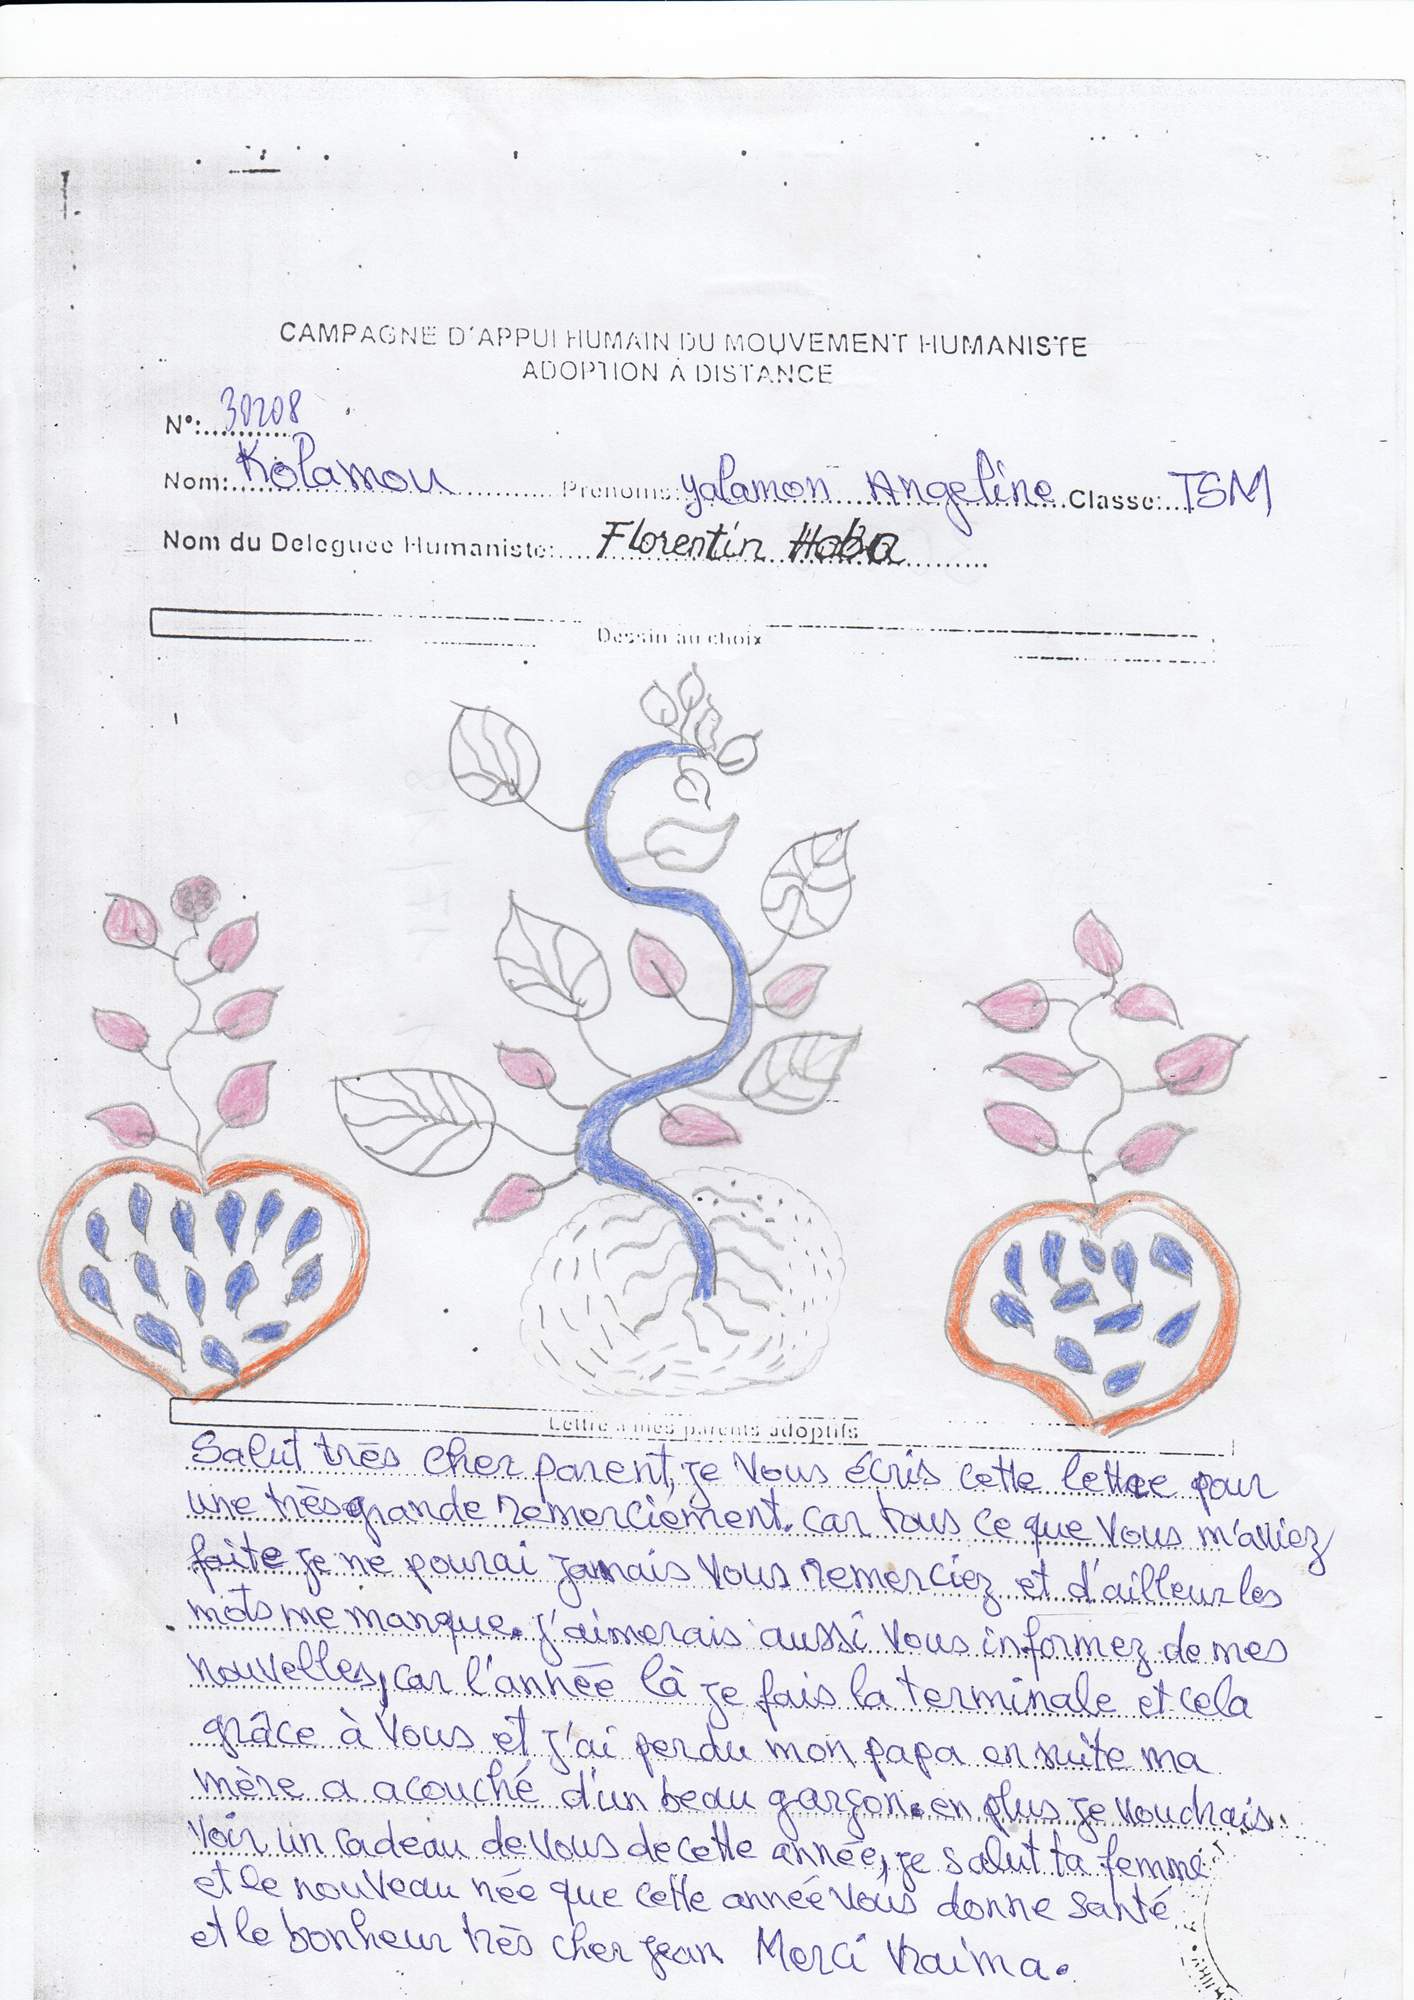 CAMPAGNE D'APPUI HUMAIN DU MOUVEMENT HUMANISTE
ADOPTION À DISTANCE
N°: 30208
Nom: Kolamou Prénoms: yalamon Angeline Classe: TSM
Nom du Deleguee Humaniste: Florentin Haba
Dessin au choix
Lettre a mes parents adoptifs
Salut très cher parent, je vous écris cette lettre pour
une très grande remerciément. car tous ce que vous m'aviez
faite je ne pourai jamais vous remerciez et d'ailleur les
mots me manque. j'aimerais aussi vous informez de mes
nouvelles, car l'année là je fais la terminale et cela
grâce à vous et j'ai perdu mon papa en suite ma
mère a acouché d'un beau garçon. en plus je voudrais
voir un cadeau de vous de cette année, je salut ta femme
et le nouveau née que cette année vous donne santé
et le bonheur très cher jean Merci vraima.